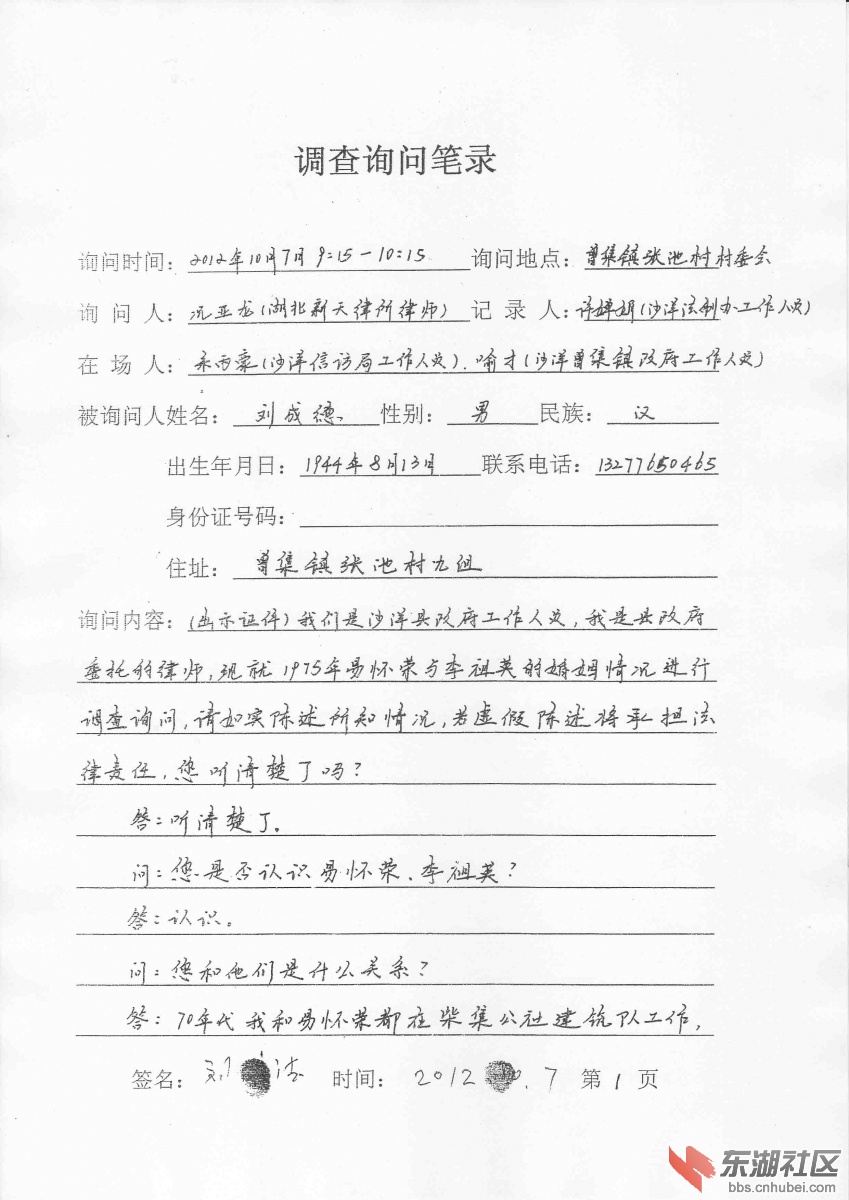 调查询问笔录
询问时间：2012年10月7日 9:15-10:15 询问地点：曾集镇张池村村委会
询 问 人：沉亚龙(湖北新天律所律师) 记 录 人：许婷娟(沙洋法制办工作人员)
在 场 人：雨豪(沙洋信访局工作人员).喻才(沙洋曾集镇政府工作人员)
被询问人姓名：刘成德 性别：男 民族：汉
出生年月日：1944年8月13日 联系电话：13277650465
身份证号码：
住址：曾集镇张池村九组
询问内容：(出示证件)我们是沙洋县政府工作人员,我是县政府
委托的律师,现就1975年易怀荣与李祖英的婚姻情况进行
调查询问,请如实陈述所知情况,若虚假陈述将承担法
律责任,您听清楚了吗？
答：听清楚了。
问：您是否认识易怀荣、李祖英？
答：认识。
问：您和他们是什么关系？
答：70年代我和易怀荣都在柴集公社建筑队工作,
签名：刘 德 时间：2012 .7 第1页
东湖社区
bbs.cnhubei.com